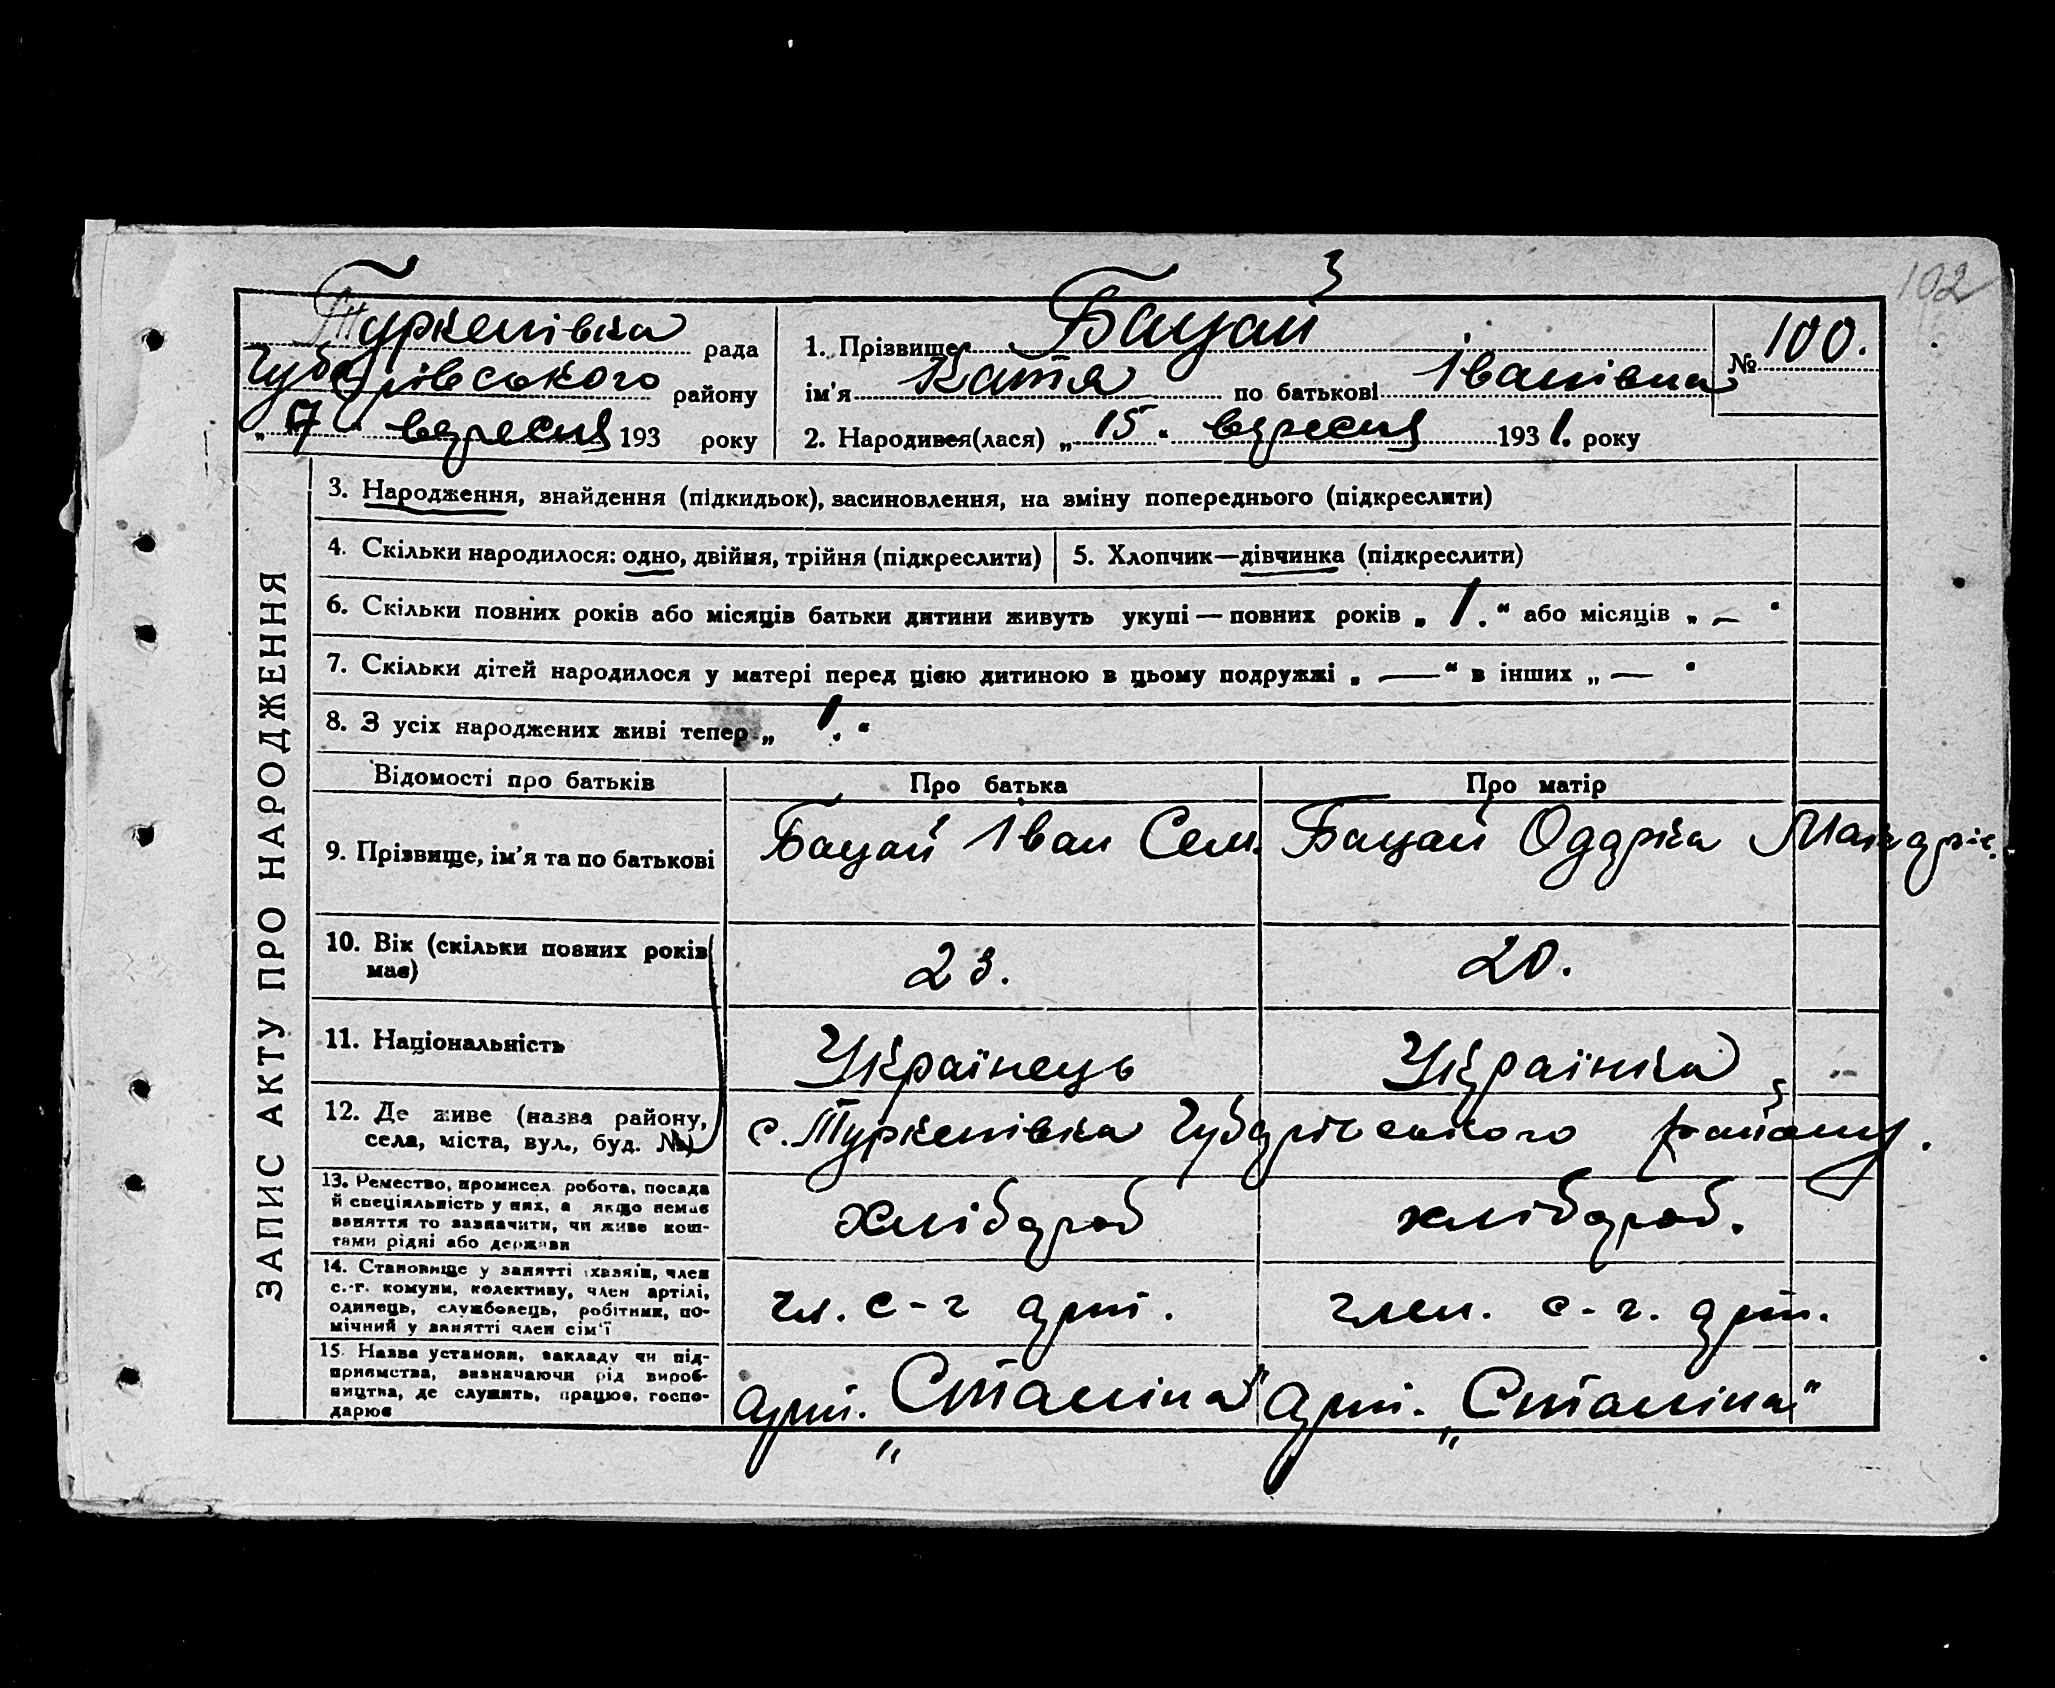 102
Туркенівка рада
Чубарівського району
„ 17 " вересня 193 року
1. Прізвище Бацай
ім'я Катя по батькові Іванівна
2. Народився(лася) „ 15 " вересня 1931. року
№ 100.
ЗАПИС АКТУ ПРО НАРОДЖЕННЯ
3. Народження, знайдення (підкидьок), засиновлення, на зміну попереднього (підкреслити)
4. Скільки народилося: одно, двійня, трійня (підкреслити)
5. Хлопчик—дівчинка (підкреслити)
6. Скільки повних років або місяців батьки дитини живуть укупі — повних років „ 1. " або місяців „ — "
7. Скільки дітей народилося у матері перед цією дитиною в цьому подружжі „ — " в інших „ — "
8. З усіх народжених живі тепер „ 1. "
Відомості про батьків
Про батька
Про матір
9. Прізвище, ім'я та по батькові
Бацай Іван Сем.
Бацай Оддрка
10. Вік (скільки повних років
має)
23.
20.
11. Національність
Українець
Українка
12. Де живе (назва району,
села, міста, вул., буд. №)
с. Туркенівка Чубарівського району.
13. Ремество, промисел робота, посада
й спеціяльність у них, а якщо немає
заняття то зазначити, чи живе кош-
тами рідні або держави
хлібороб
хлібороб.
14. Становище у занятті хазяїн, член
с.-г. комуни, колективу, член артілі,
одинець, службовець, робітник, по-
мічний у занятті член сім'ї
чл. с-г арт.
член. с-г. арт.
15. Назва установи, закладу чи під-
приємства, зазначаючи рід вироб-
ництва, де служить, працює, госпо-
дарює
арт. „Сталіна"
арт. „Сталіна"